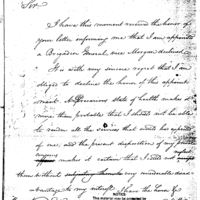 Sir
I have this moment received the honor of
your letter informing me that I am appointed
a Brigadier General, vice Morgan declined.
It is with my sincere regret that I am
obliged to decline the honor of this appoint
ment. A precarious state of health makes it
more than probable that I should not be able
to render all the services that would be expected
of me, and the present disposition of my
makes it certain that I could not
them without subjecting
to my interest. I have the honor
NOTICE
This material may be protected by